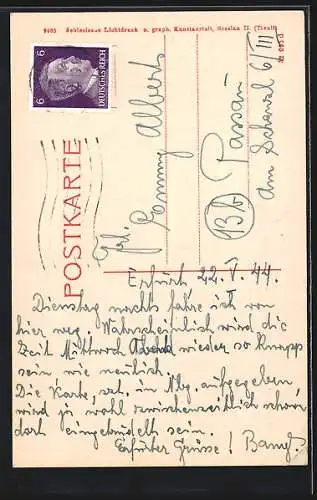 9405 Schlesische Lichtdruck u. graph. Kunstanstalt, Breslau II. (Tivoli)
DEUTSCHES REICH
6
6
POSTKARTE
Frl. Emmy Albert
13b Passau
Am Schanzl 6/III
Erfurt 22. V. 44.
Dienstag nachts fahre ich von
hier weg. Wahrscheinlich wird die
Zeit Mittwoch wieder so knapp
sein wie neulich.
Die Karte, in Nbg. aufgegeben,
wird ja wohl zwischenzeitlich schon
dort eingetrudelt sein.
Erfurter Grüsse!